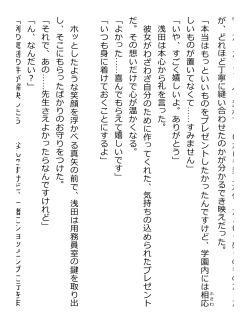 が、どれほど丁寧に縫い合わせたのかが分かるでき映えだった。
「本当はもっといいものをプレゼントしたかったんですけど、学園内には相応
しいものが置いてなくて……すみません」
「いや、すごく嬉しいよ。ありがとう」
浅田は本心から礼を言った。
彼女がわざわざ自分のために作ってくれた、気持ちの込められたプレゼント
だ。その想いだけで心が温かくなる。
「よかった……喜んでもらえて嬉しいです」
「いつも身に着けておくことにするよ」
ホッとしたような笑顔を浮かべる真矢の前で、浅田は用務員室の鍵を取り出
し、そこにもらったばかりのお守りをつけた。
「それで、あの……先生さえよかったらなんですけれど」
「ん、なんだい？」